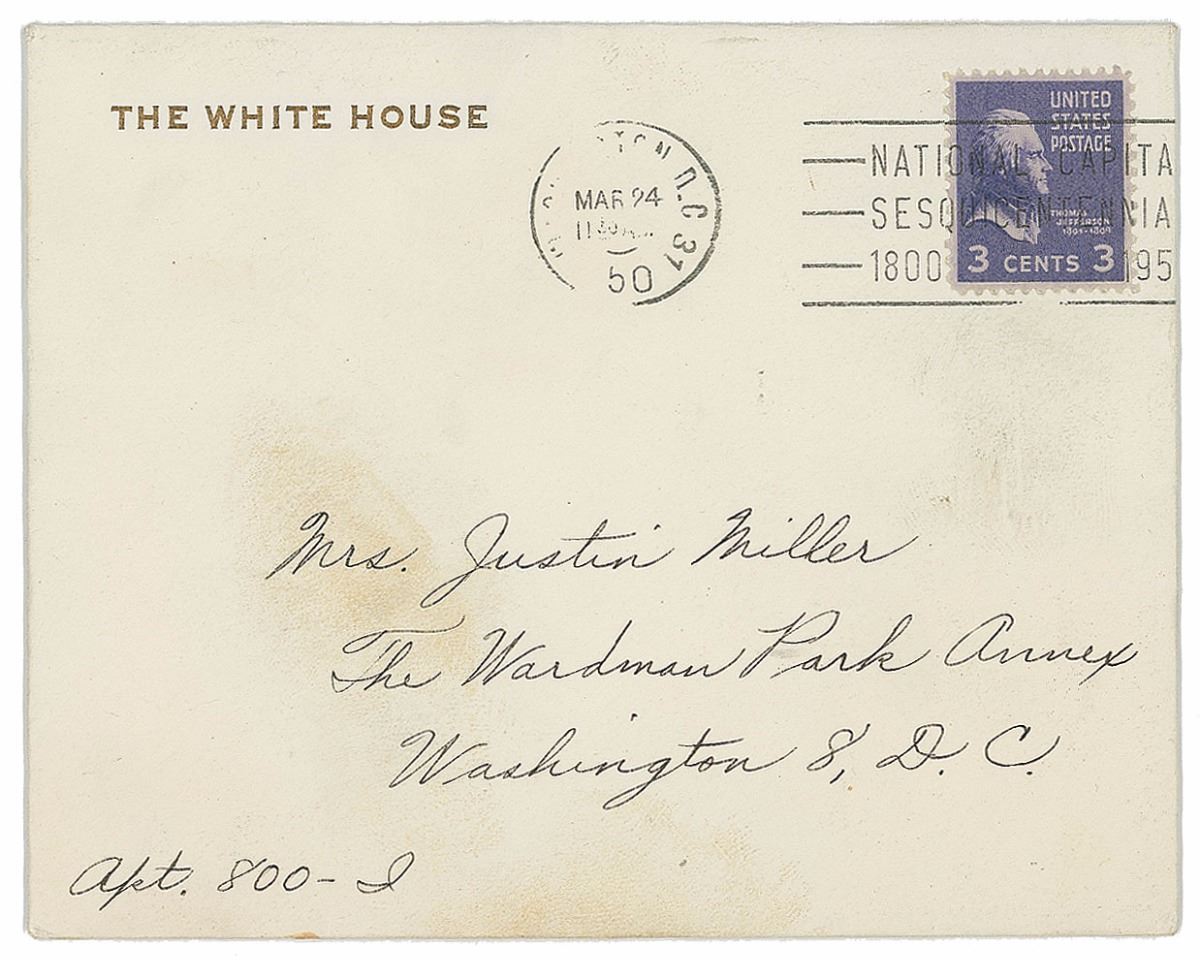 THE WHITE HOUSE
N.C 31
MAR 24
50
UNITED
STATES
POSTAGE
NATIONAL CAPITA
SESQUICENTENNIA
THOMAS
JEFFERSON
1801-1809
1800 195
3 CENTS 3
Mrs. Justin Miller
The Wardman Park Annex
Washington 8, D. C.
Apt. 800-I